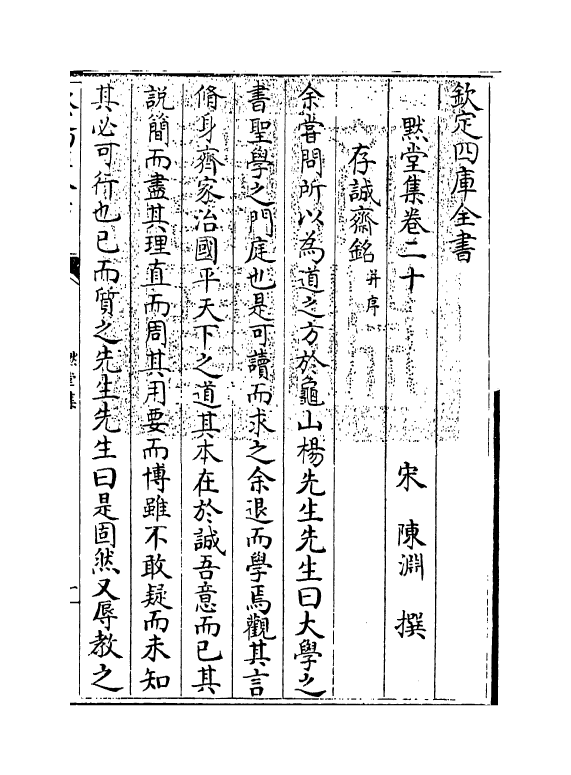 欽定四庫全書
黙堂集卷二十
宋 陳淵 撰
存誠齋銘 并序
余嘗問所以為道之方於龜山楊先生先生曰大學之
書聖學之門庭也是可讀而求之余退而學焉觀其言
脩身齊家治國平天下之道其本在於誠吾意而已其
說簡而盡其理直而周其用要而博雖不敢疑而未知
其必可行也已而質之先生先生曰是固然又辱教之
黙堂集
一